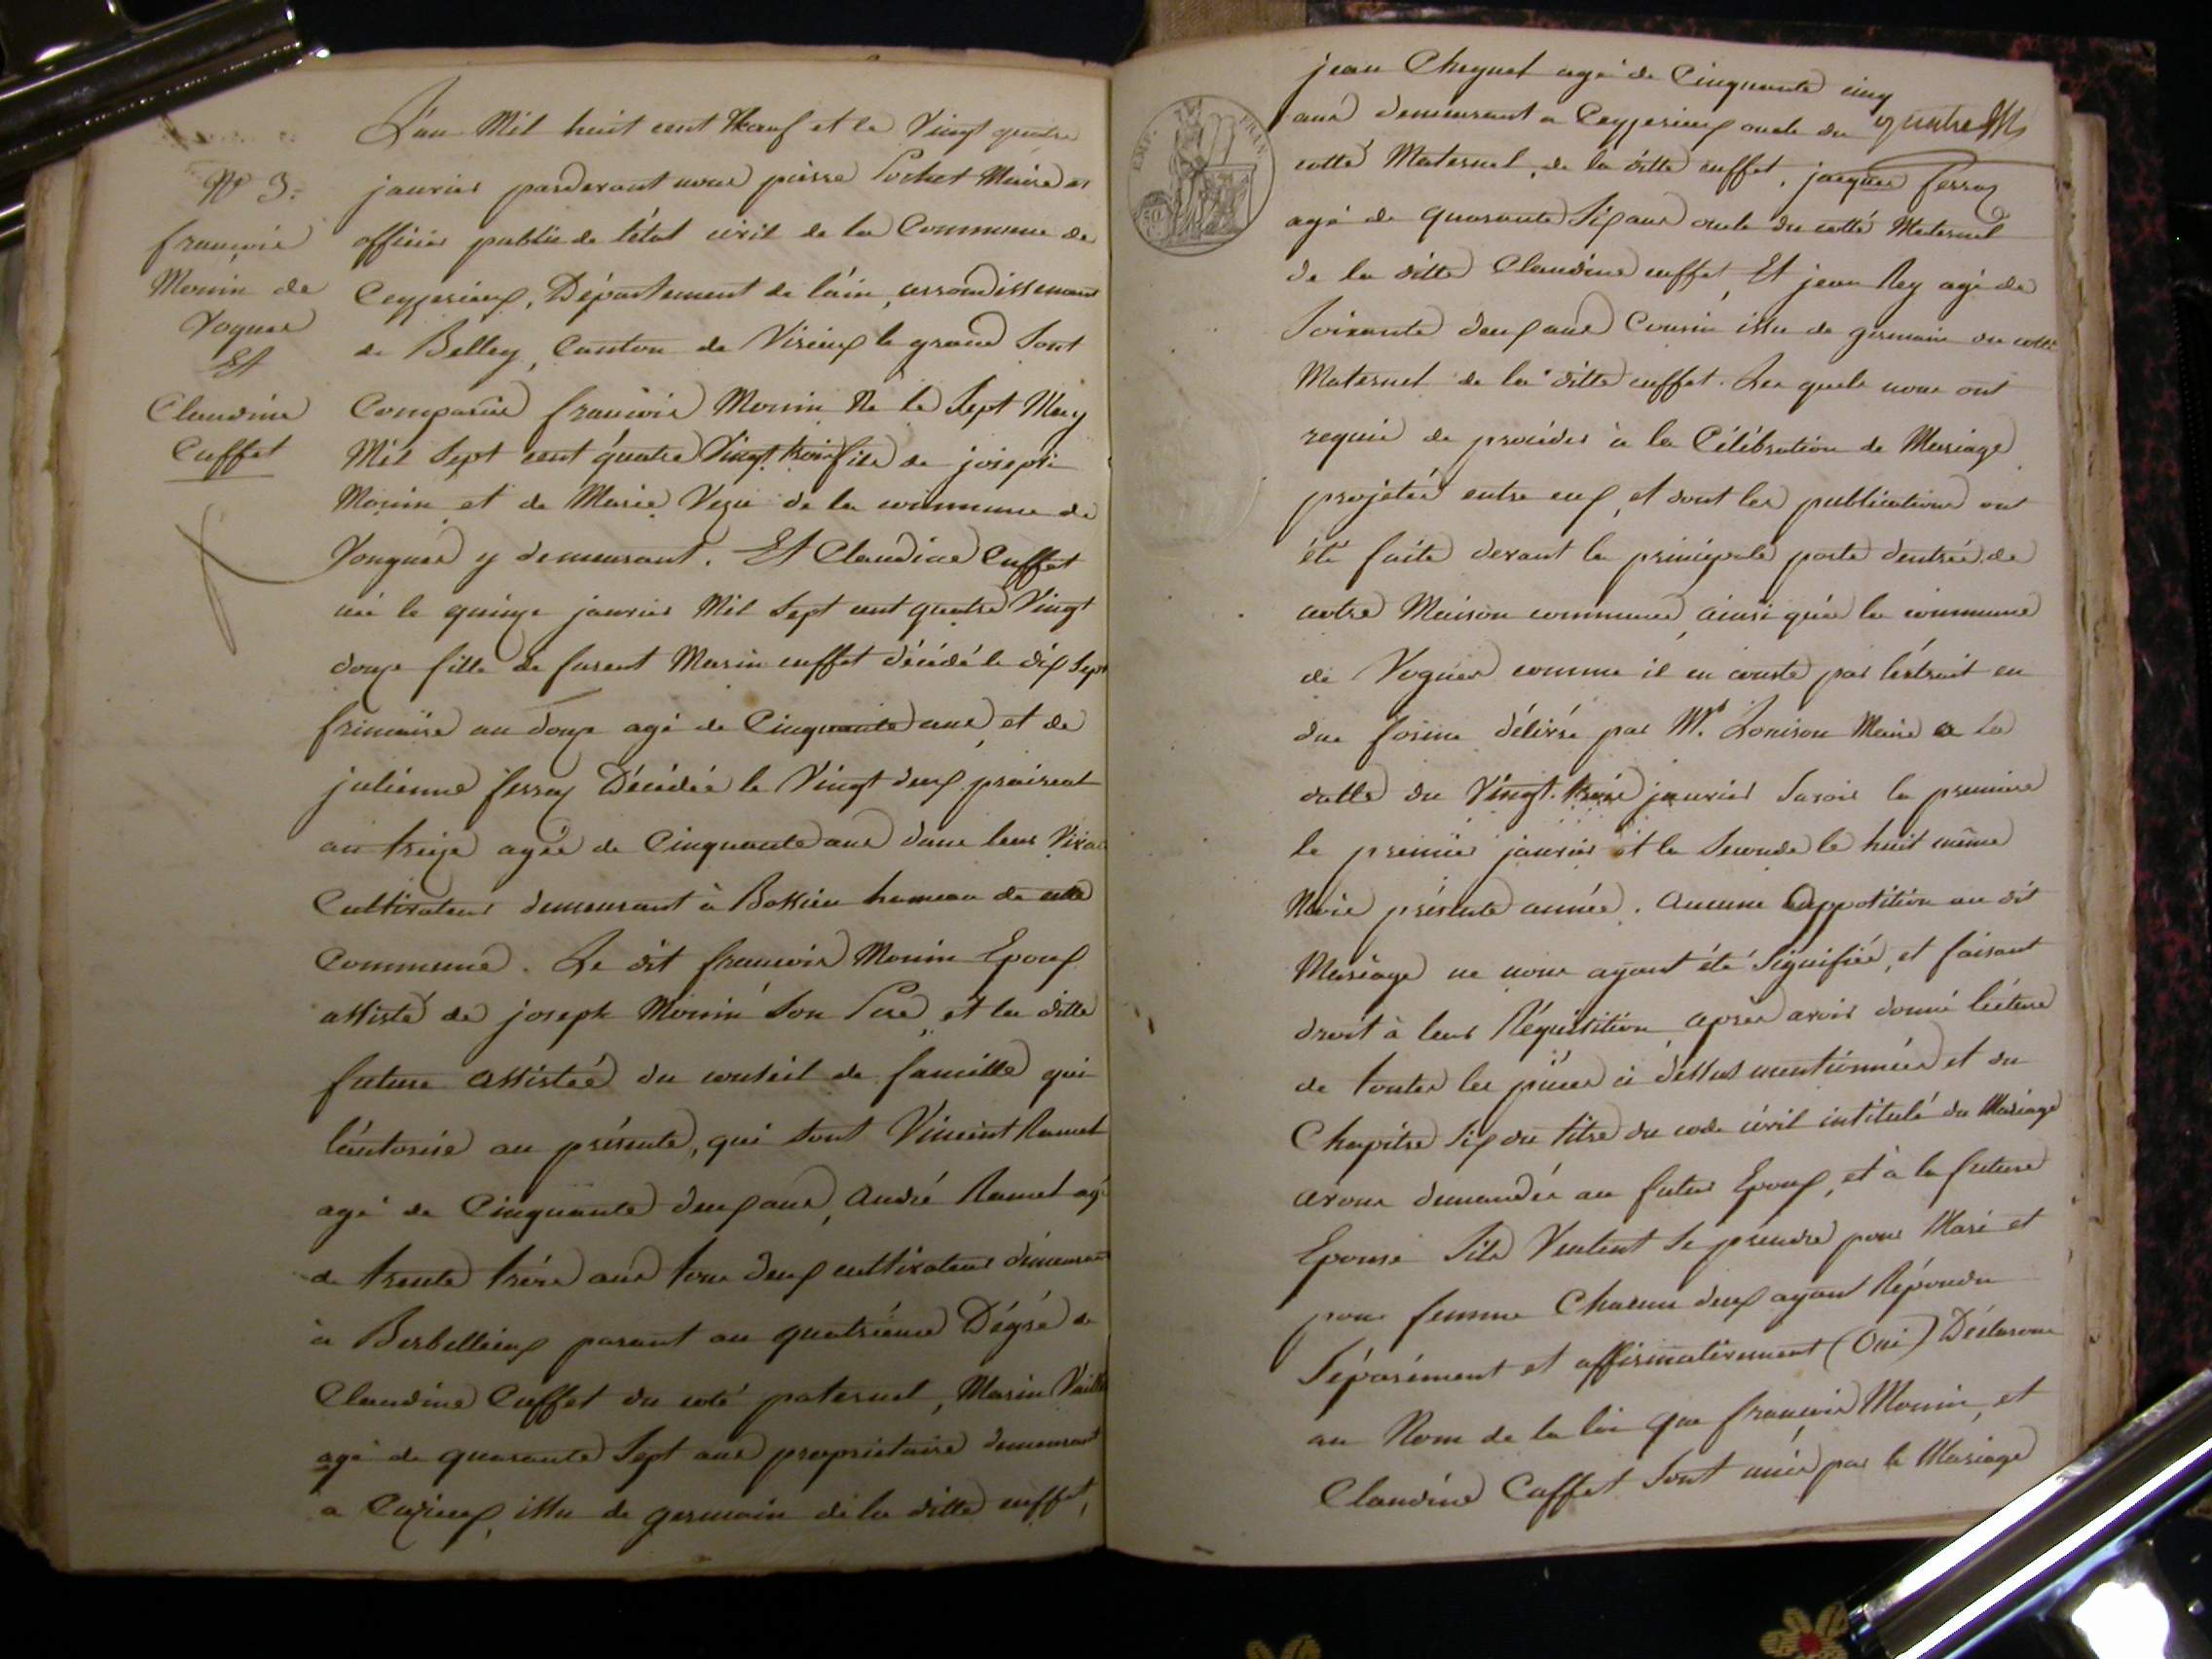 N° 3.
françois
Monin de
Vognes
Et
Claudine
Cuffet
L'an Mil huit cent Neuf et le Vingt quatre
janvier pardevant nous pierre Pochet Maire et
officier public de l'état civil de la Commune de
Ceyzerieux, Département de l'ain, arrondissement
de Belley, Canton de Virieux le grand Sont
Comparus françois Monin Né le Sept May
Mil Sept cent quatre Vingt trois fils de joseph
Monin et de Marie de la commune de
Vongnes y demeurant. Et Claudine Cuffet
née le quinze janvier Mil Sept cent quatre Vingt
douze fille de furent Marin cuffet décédé le dix Sept
frimaire an douze agé de Cinquante ans, et de
julienne ferraz Décédée le Vingt deux prairial
an treize agée de Cinquante ans dans leur Vivant
Cultivateurs demeurant à Bossieu hameau de cette
Commune. Le dit françois Monin Epoux
assisté de joseph Monin Son Pere, et la ditte
future assistée du conseil de famille qui
l'autorise au présente, qui sont Vincent Ramel
agé de Cinquante deux ans, André Ramel agé
de trente trére ans tous deux cultivateurs demeurant
à Berbellieux parant au quatriéme Dégré de
Claudine Cuffet du coté paternel, Marin
agé de quarante Sept ans propriétaire demeurant
a Cuzieux, issu de germain de la ditte cuffet,
EMP. FRAN.
50
jean Cheynel agé de Cinquante cinq
ans demeurant a Ceyzerieux oncle du quatre
cotté Maternel, de la ditte cuffet, jacques ferraz
agé de quarante Six ans oncle du cotté Maternel
de la ditte Claudine cuffet, Et jean Rey agé de
Soixante deux ans Cousin issu de germain du cotté
Maternel de la ditte cuffet. Les quels nous ont
requis de procéder à la Célébration de Mariage
projetée entre eux, et dont les publications ont
été faite devant la principale porte d'entrée de
notre Maison commune, ainsi qu'a la commune
de Vognes comme il en conste par l'éxtrait en
due forme délivré par Mr. Louison Maire a la
datte du Vingt trois janvier Savoir la premiere
le premier janvier et la Seconde le huit même
Mois présente année. Aucune Oppotition au dit
Mariage ne nous ayant été Signifiée, et faisant
droit à leur Réquisition, après avoir donné lecture
de toutes les pièces ci dessus mentionnées et du
Chapitre Six du titre du code civil intitulé du Mariage
avons demandés au futur Epoux, et à la future
Epouse S'ils Veulent Se prendre pour Mari et
pour femme Chacun deux ayant Répondu
Séparément et affirmativement (Oui) Déclarons
au Nom de la loi que françois Monin, et
Claudine Cuffet Sont unis par le Mariage